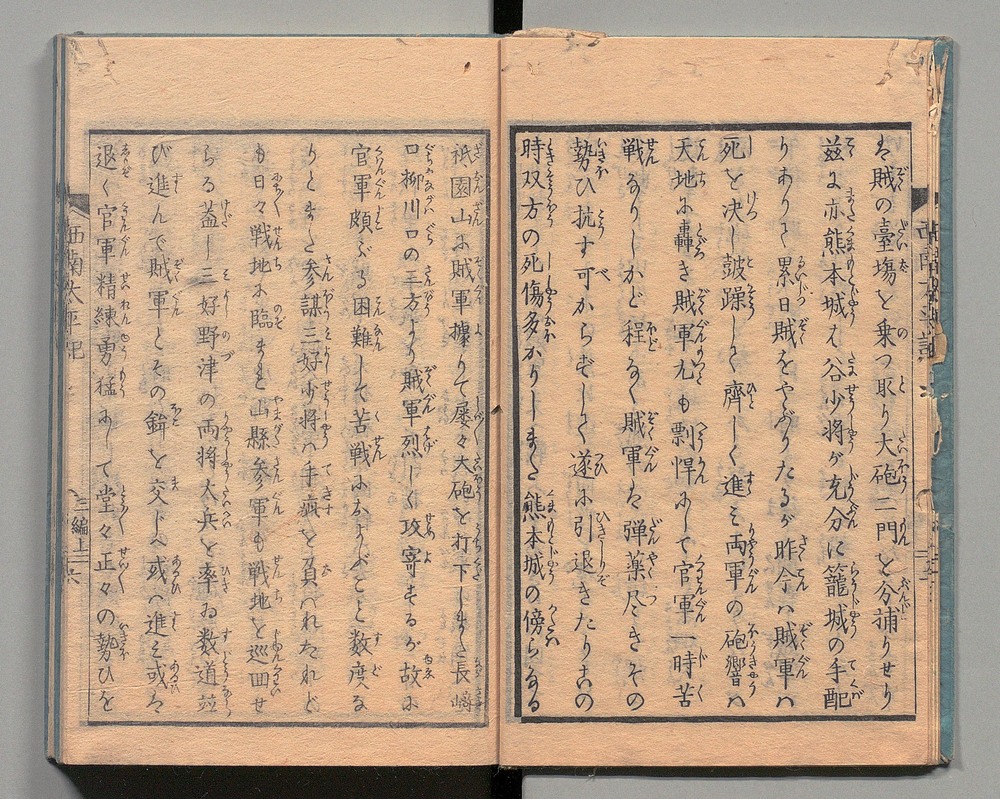 は賊の臺塲を乗つ取り大砲二門を分捕りせり
茲に亦熊本城は谷少将が充分に籠城の手配
りありて累日賊をやぶりたるが昨今ハ賊軍ハ
死を决し皷躁して齊しく進ミ両軍の砲響ハ
天地に轟き賊軍尤も剽悍にして官軍一時苦
戦なりしかど程なく賊軍は弾薬尽きその
勢ひ抗す可からずして遂に引退きたりこの
時双方の死傷多かりしまた熊本城の傍らなる
祇園山に賊軍據りて屡々大砲を打下しまた長嶹
口柳川口の三方より賊軍烈しく攻寄するが故に
官軍頗ぶる困難して苦戦におよぶこと数度な
りとまた参謀三好少将ハ手疵を負ハれたれど
も日々戦地に臨まれ山縣参軍も戦地を巡回せ
らる蓋し三好野津の両将大兵を率ゐ数道並
び進んで賊軍とその鉾を交じへ或ハ進ミ或は
退く官軍精練勇猛にして堂々正々の勢ひを
西南太平記
三編上
六